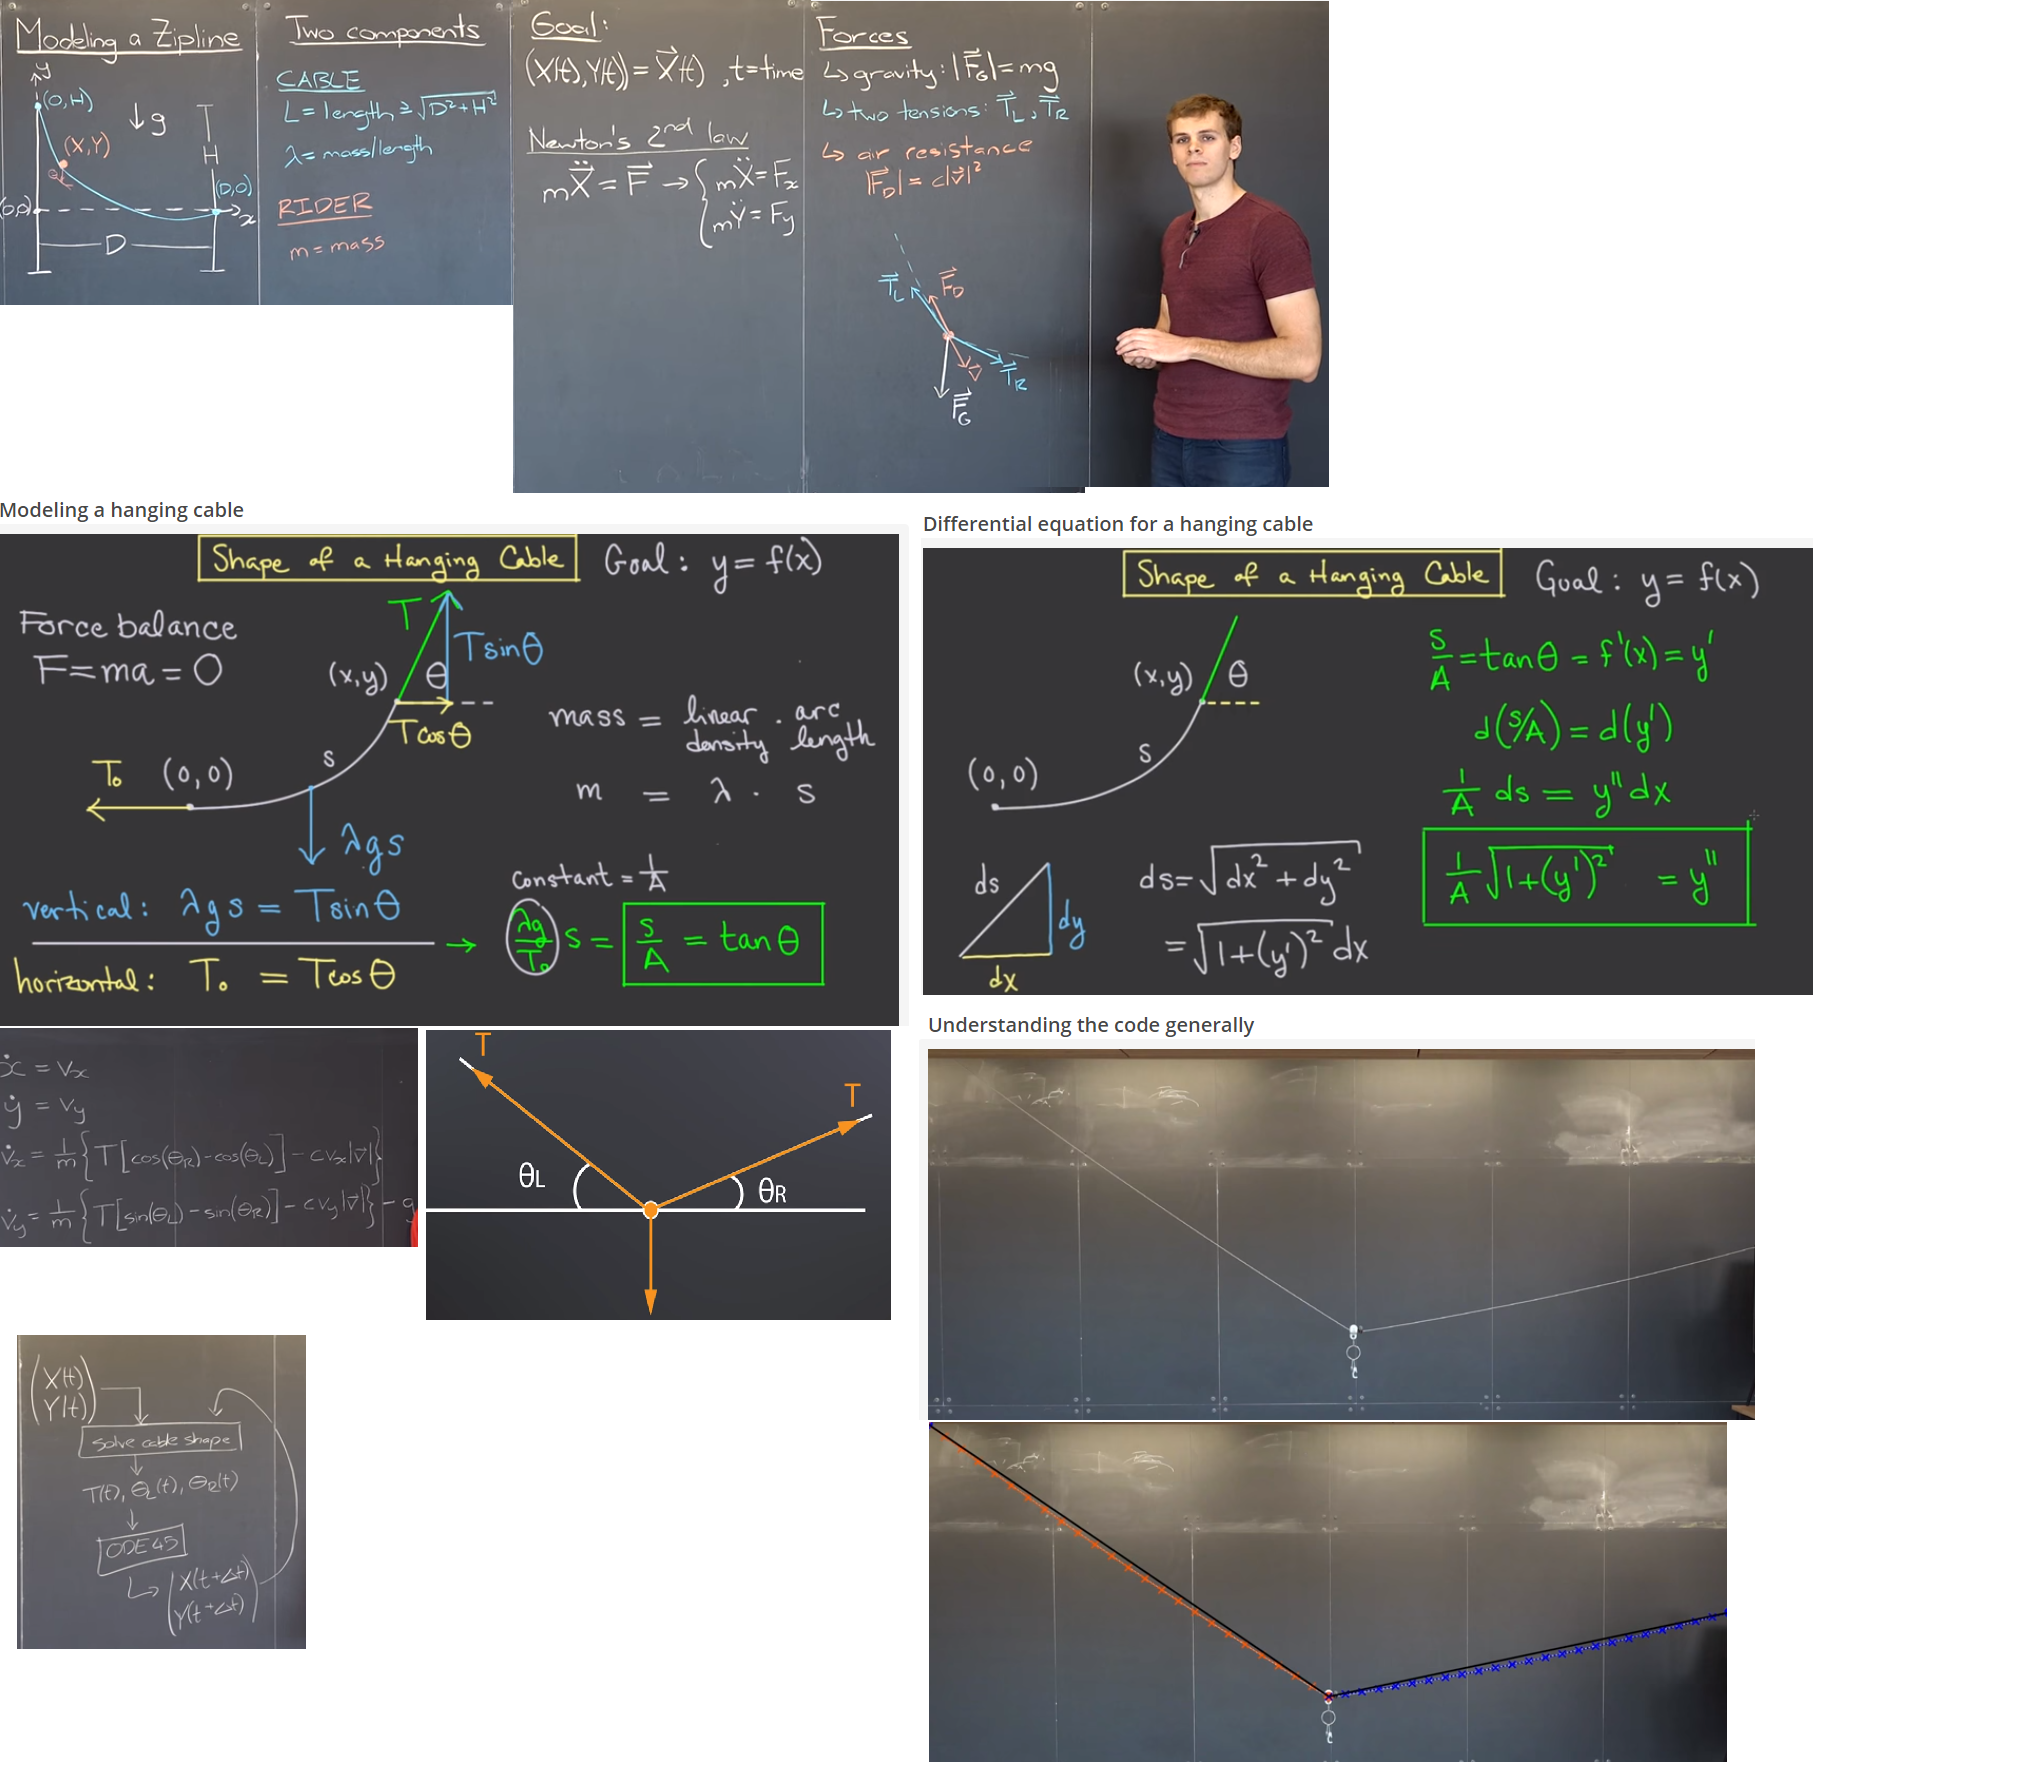 Modeling a Zipline
y
(0,H)
↓g
(X,Y)
H
(D,0)
(0,0)
x
D
Two components
CABLE
L = length ≥ √D²+H²
λ = mass/length
RIDER
m = mass
Goal:
(X(t),Y(t)) = X⃗(t) , t=time
Newton's 2nd law
mẌ⃗ = F⃗ → { mẌ = Fx
mŸ = Fy
Forces
↳ gravity: |F⃗G| = mg
↳ two tensions: T⃗L, T⃗R
↳ air resistance
|F⃗D| = c|v⃗|²
T⃗L
F⃗D
v⃗
T⃗R
F⃗G
Modeling a hanging cable
Shape of a Hanging Cable
Goal: y = f(x)
Force balance
F=ma=0
T
T sinθ
(x,y)
θ
T cosθ
s
T₀
(0,0)
λgs
mass = linear density · arc length
m = λ · s
constant = 1/A
vertical: λgs = T sinθ
horizontal: T₀ = T cosθ
→ λg/T₀ s = s/A = tanθ
Differential equation for a hanging cable
Shape of a Hanging Cable
Goal: y = f(x)
(x,y)
θ
s
(0,0)
s/A = tanθ = f'(x) = y'
d(s/A) = d(y')
1/A ds = y'' dx
1/A √1+(y')² = y''
ds
dy
dx
ds = √dx² + dy²
= √1+(y')² dx
ẋ = vx
ẏ = vy
v̇x = 1/m {T[cos(θR)-cos(θL)] - cvx|v⃗|}
v̇y = 1/m {T[sin(θL)-sin(θR)] - cvy|v⃗|} - g
T
T
θL
θR
Understanding the code generally
(X(t)
Y(t))
solve cable shape
T(t), θL(t), θR(t)
ODE45
↳ (X(t+Δt)
Y(t+Δt))